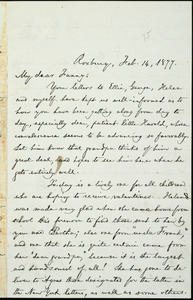 Roxbury, Feb. 14, 1877.
My dear Fanny:
Your letters to Ellie, George, Helen
and myself, have kept us well-informed as to
how you have been getting along from day to
day, especially dear, patient little Harold, whose
convalescence seems to be advancing so favorably.
Let him know that grandpa thinks of him a
great deal, and hopes to see him here when he
gets entirely well.
To-day is a lively one for all children
who are hoping to receive valentines. Helen
was made very glad when she came down
about this forenoon to find those sent to her by
you and Bertha; also one from "uncle Frank,"
and one that she is quite certain came from
her dear grandpa, because it is the largest
and handsomest of all! She has gone to de-
liver to Agnes those designated for the latter in
the New York letters, as well as some others